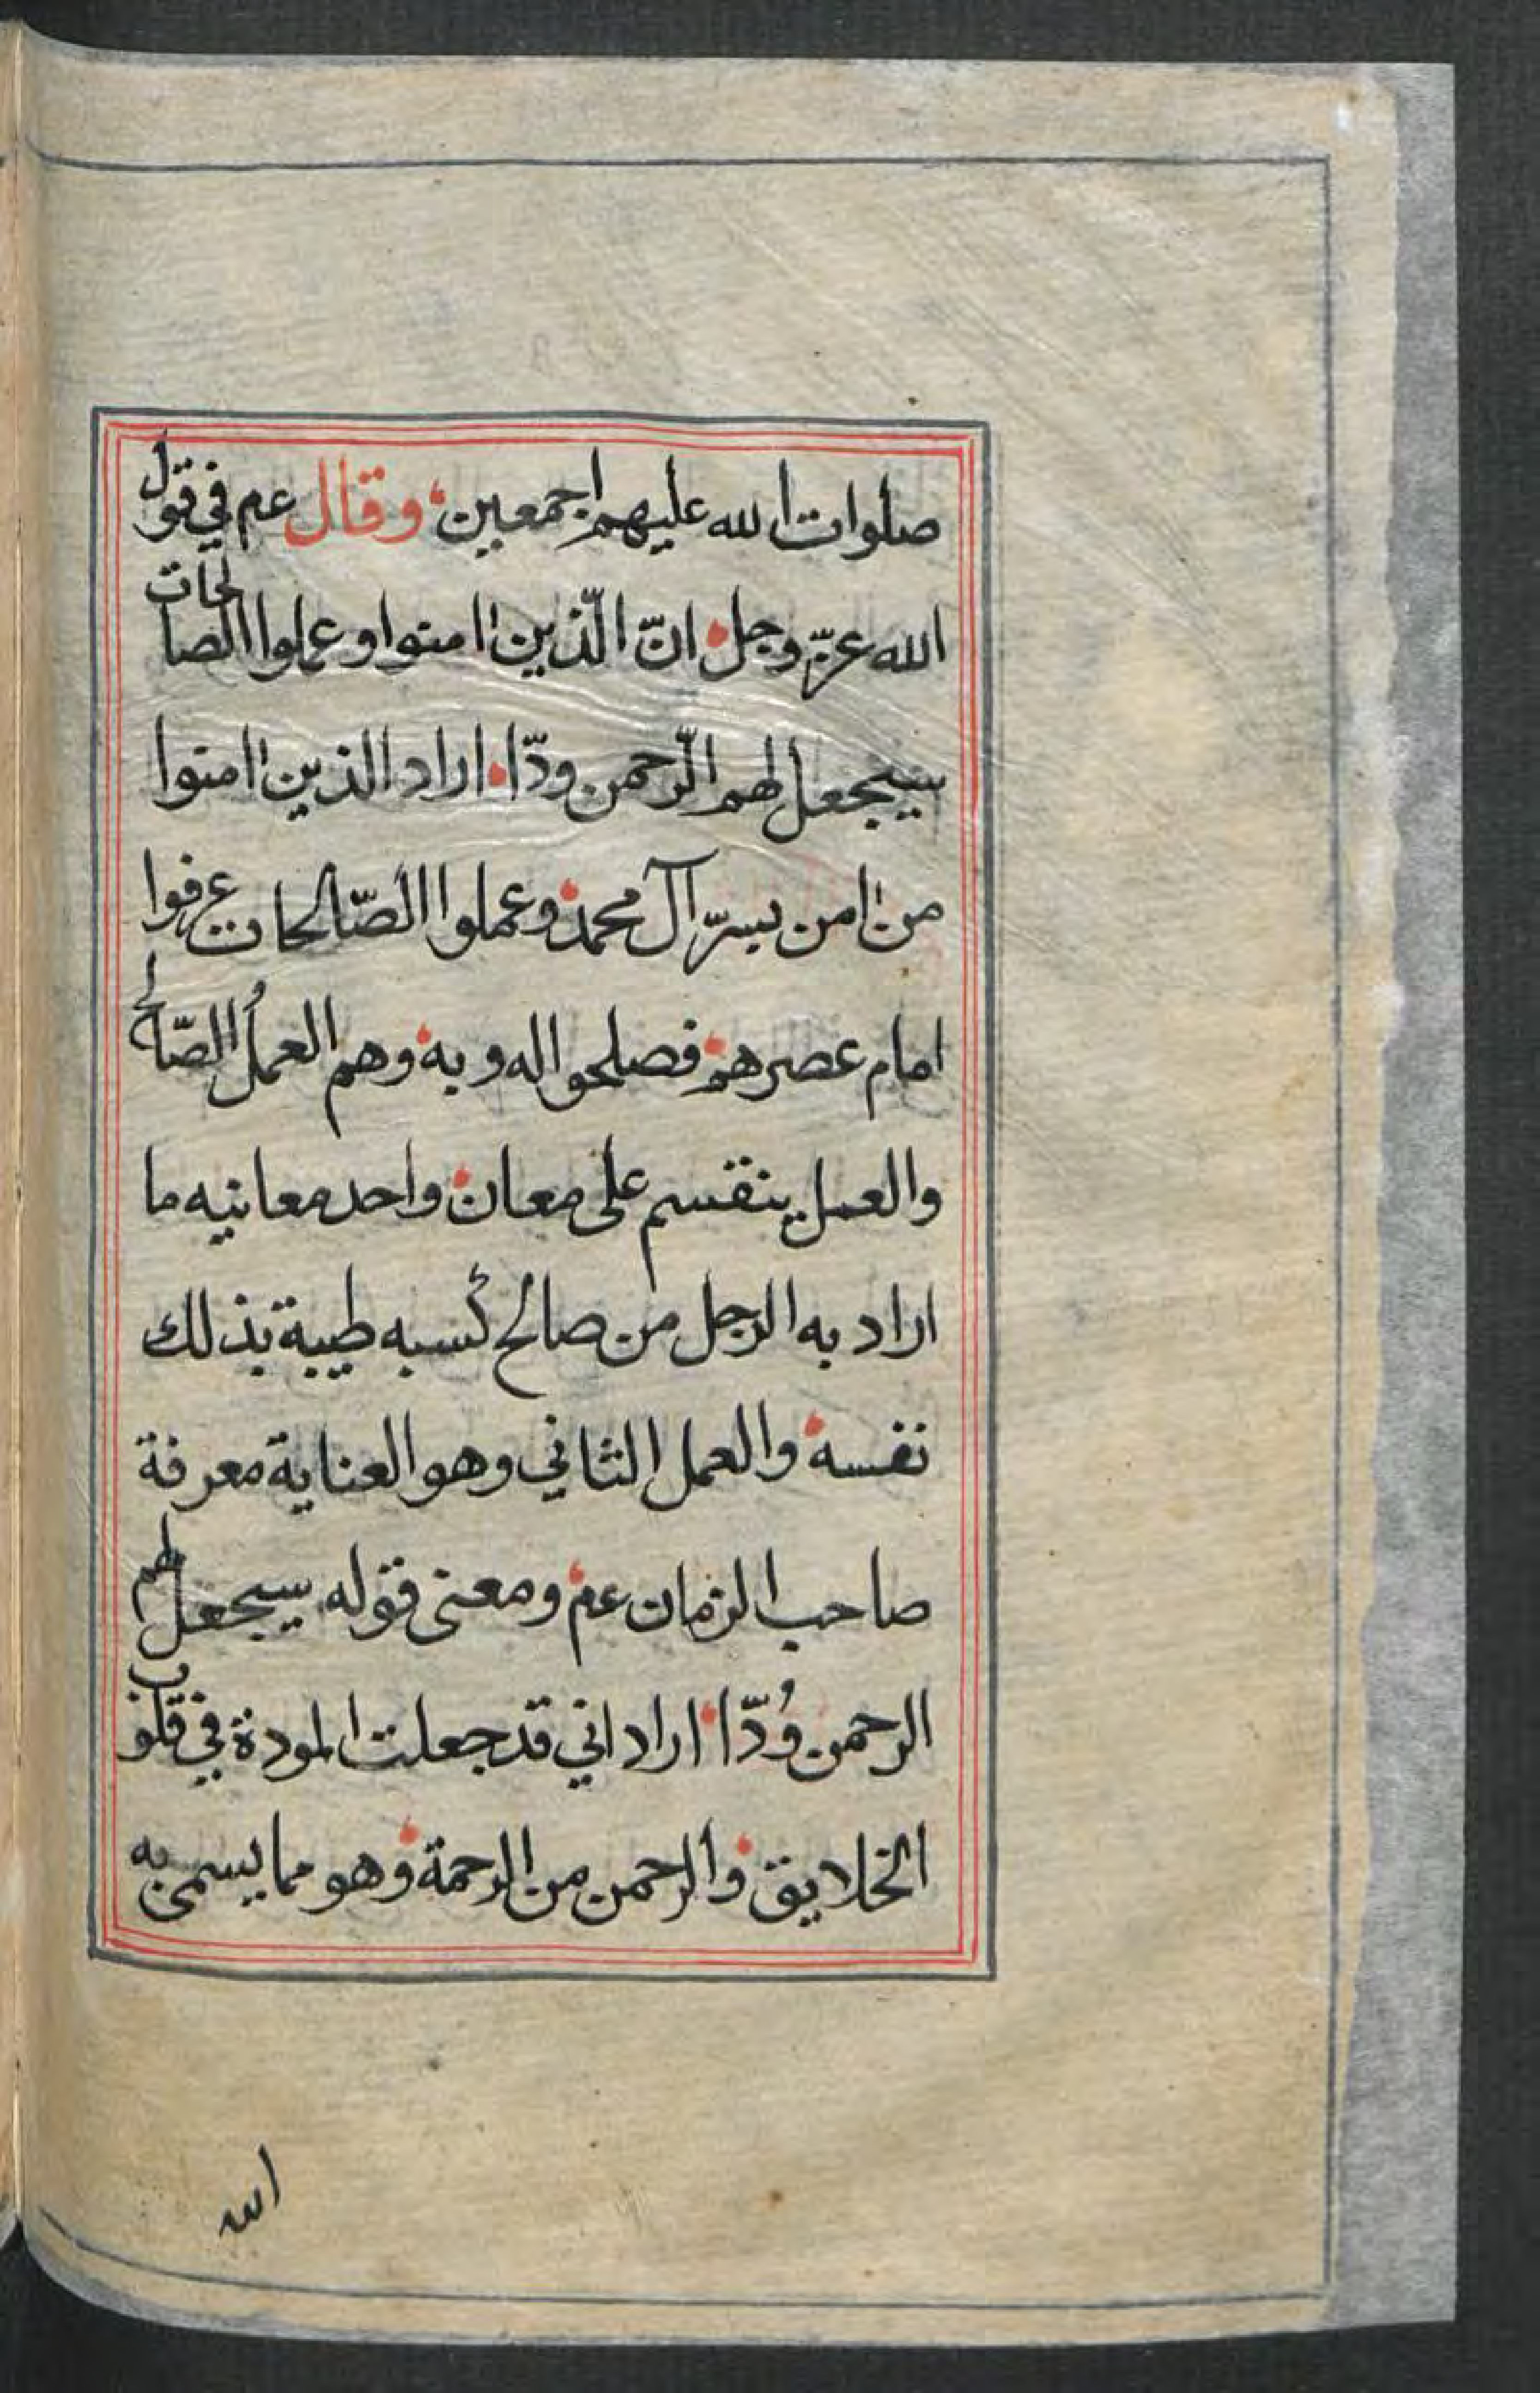 صلوات الله عليهم اجمعين وقال عم في قول
الله عزّ وجل انّ الّذين اامنوا وعملوا الصالحات
سيجعل لهم الرّحمن ودّا اراد الذين اامنوا
من اامن بسرّ آل محمد وعملوا الصّالحات عرفوا
امام عصرهم فصلحوا له وبه وهم العملُ الصّالح
والعمل ينقسم على معان واحد معانيه ما
اراد به الرجل من صالح كسبه طيبة بذلك
نفسه والعمل الثاني وهو العناية معرفة
صاحب الزمان عم ومعنى قوله سيجعل لهم
الرحمن وُدّا اراد اني قد جعلت المودة في قلوب
الخلايق والرحمن من الرحمة وهو مما يسمى به
الله